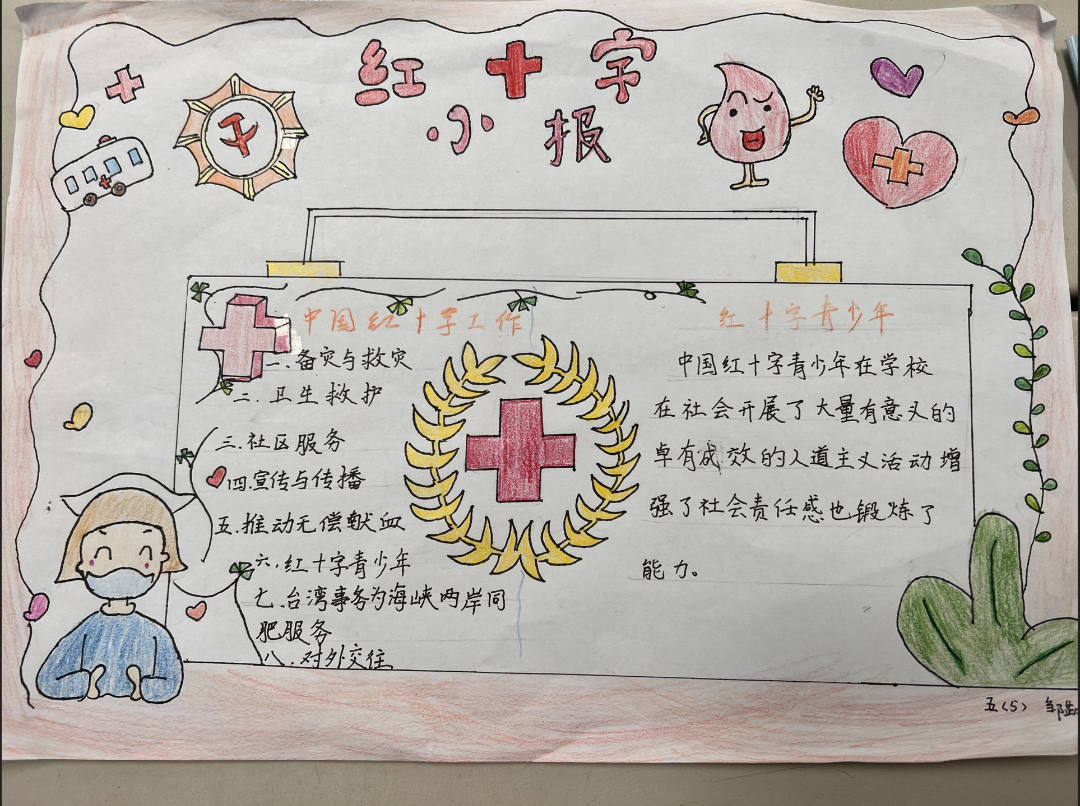 红十字
小报
中国红十字工作
一.备灾与救灾
二.卫生救护
三.社区服务
四.宣传与传播
五.推动无偿献血
六.红十字青少年
七.台湾事务为海峡两岸同
肥服务
八.对外交往
红十字青少年
中国红十字青少年在学校
在社会开展了大量有意义的
卓有成效的人道主义活动增
强了社会责任感也锻炼了
能力。
五(5)